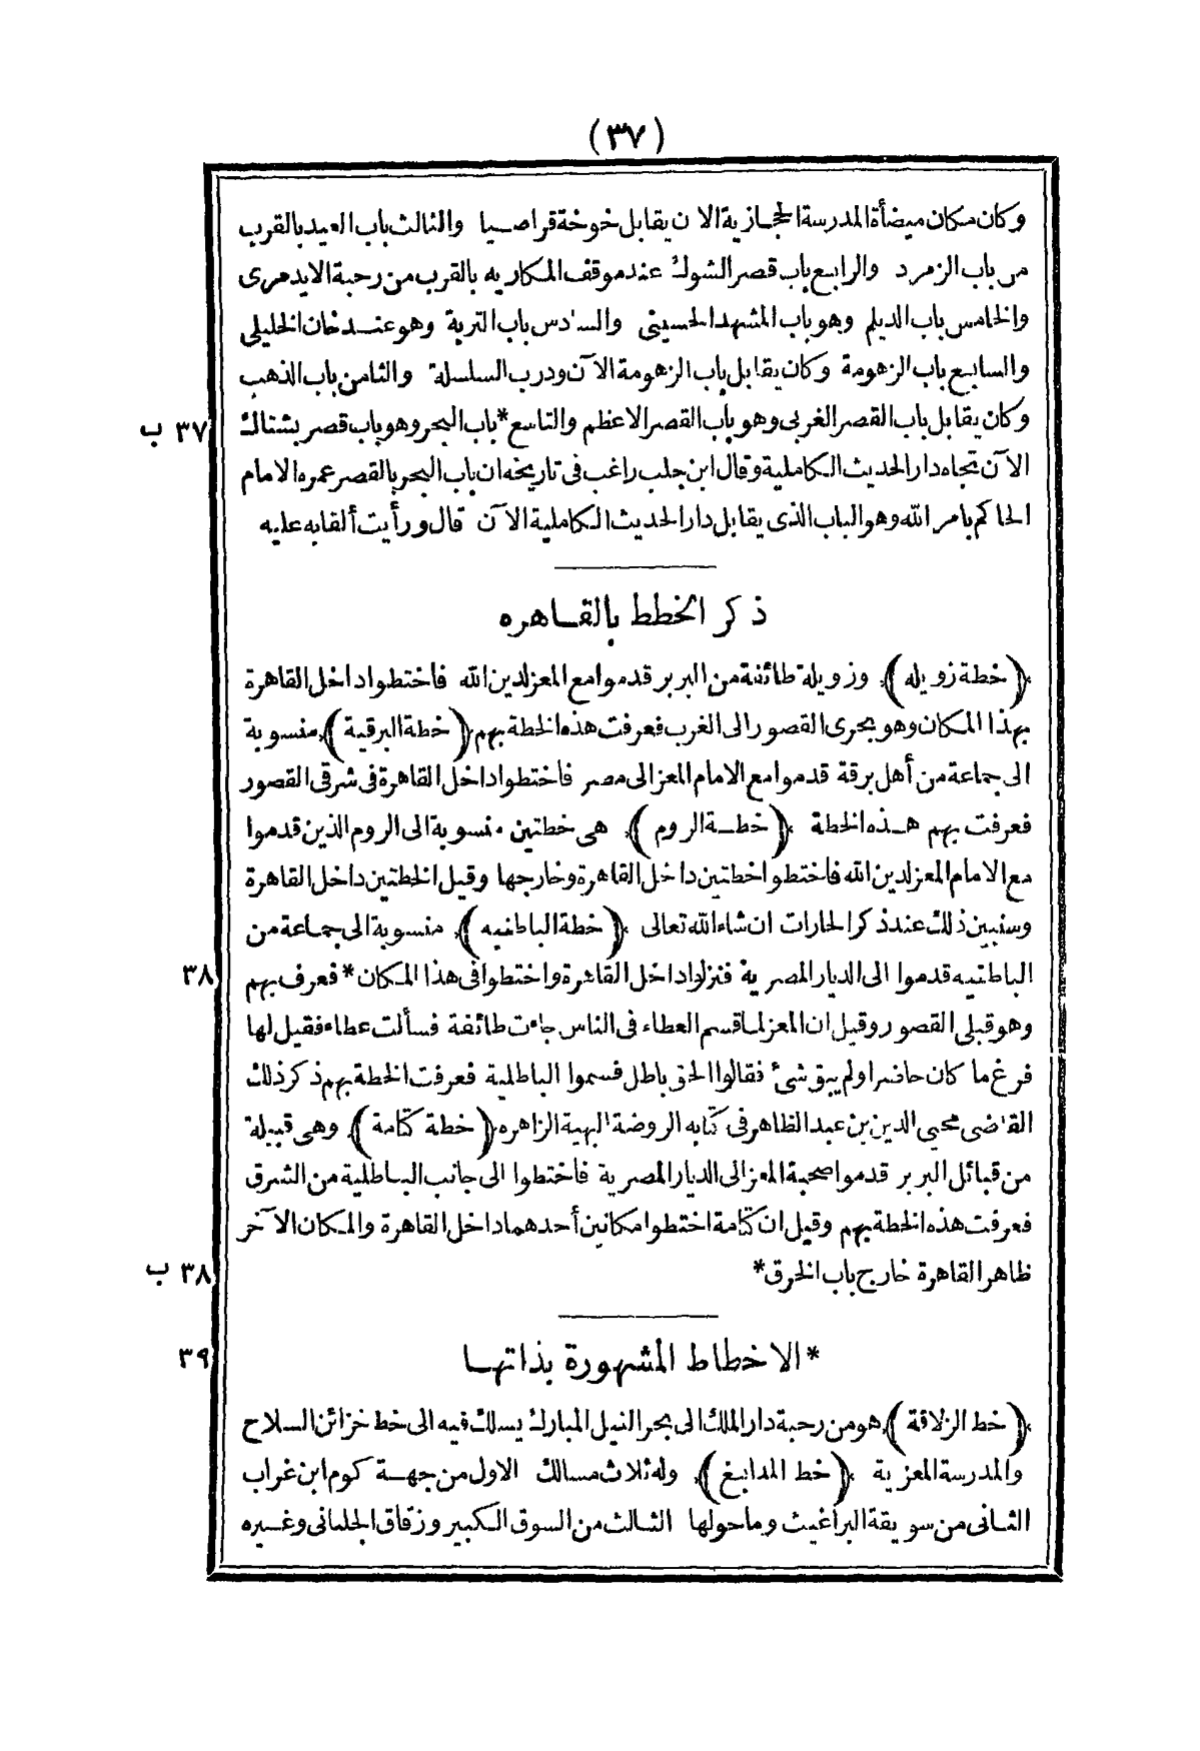 (٣٧)
وكان مكان ميضأة المدرسة الحجازية الآن يقابل خوخة قراصيا والثالث باب العيد بالقرب
من باب الزمرد والرابع باب قصر الشوك عند موقف المكاريه بالقرب من رحبة الايدمرى
والخامس باب الديلم وهو باب المشهد الحسينى والسادس باب التربة وهو عند خان الخليلى
والسابع باب الزهومة وكان يقابل باب الزهومة الآن ودرب السلسلة والثامن باب الذهب
وكان يقابل باب القصر الغربى وهو باب القصر الاعظم والتاسع * باب البحر وهو باب قصر بشتاك
٣٧ ب
الآن تجاه دار الحديث الكاملية وقال ابن جلب راغب فى تاريخه ان باب البحر بالقصر عمره الامام
الحاكم بامر الله وهو الباب الذى يقابل دار الحديث الكاملية الآن قال ورأيت ألقابه عليه
ذكر الخطط بالقاهره
(خطة زويله) وزويلة طائفة من البربر قدموا مع المعز لدين الله فاختطوا داخل القاهرة
بهذا المكان وهو بحرى القصور الى الغرب فعرفت هذه الخطة بهم (خطة البرقية) منسوبة
الى جماعة من أهل برقة قدموا مع الامام المعز الى مصر فاختطوا داخل القاهرة فى شرقى القصور
فعرفت بهم هذه الخطة (خطة الروم) هى خطتين منسوبة الى الروم الذين قدموا
مع الامام المعز لدين الله فاختطوا خطتين داخل القاهرة وخارجها وقيل الخطتين داخل القاهرة
وسنبين ذلك عند ذكر الحارات ان شاء الله تعالى (خطة الباطنيه) منسوبة الى جماعة من
الباطنيه قدموا الى الديار المصرية فنزلوا داخل القاهرة واختطوا فى هذا المكان * فعرف بهم
٣٨
وهو قبلى القصور وقيل ان المعز لما قسم العطاء فى الناس جاءت طائفة فسألت عطاء فقيل لها
فرغ ما كان حاضرا ولم يبق شئ فقالوا الحق باطل فسموا الباطلية فعرفت الخطة بهم ذكر ذلك
القاضى محيى الدين بن عبد الظاهر فى كتابه الروضة البهية الزاهره (خطة كتامة) وهى قبيلة
من قبائل البربر قدموا صحبة المعز الى الديار المصرية فاختطوا الى جانب الباطلية من الشرق
فعرفت هذه الخطة بهم وقيل ان كتامة اختطوا مكانين أحدهما داخل القاهرة والمكان الآخر
ظاهر القاهرة خارج باب الخرق *
٣٨ ب
* الاخطاط المشهورة بذاتها
٣٩
(خط الزلاقة) هو من رحبة دار الملك الى بحر النيل المبارك يسلك فيه الى خط خزائن السلاح
والمدرسة المعزية (خط المدابغ) وله ثلاث مسالك الاول من جهة كوم ابن غراب
الثانى من سويقة البراغيث وما حولها الثالث من السوق الكبير وزقاق الجلبانى وغيره